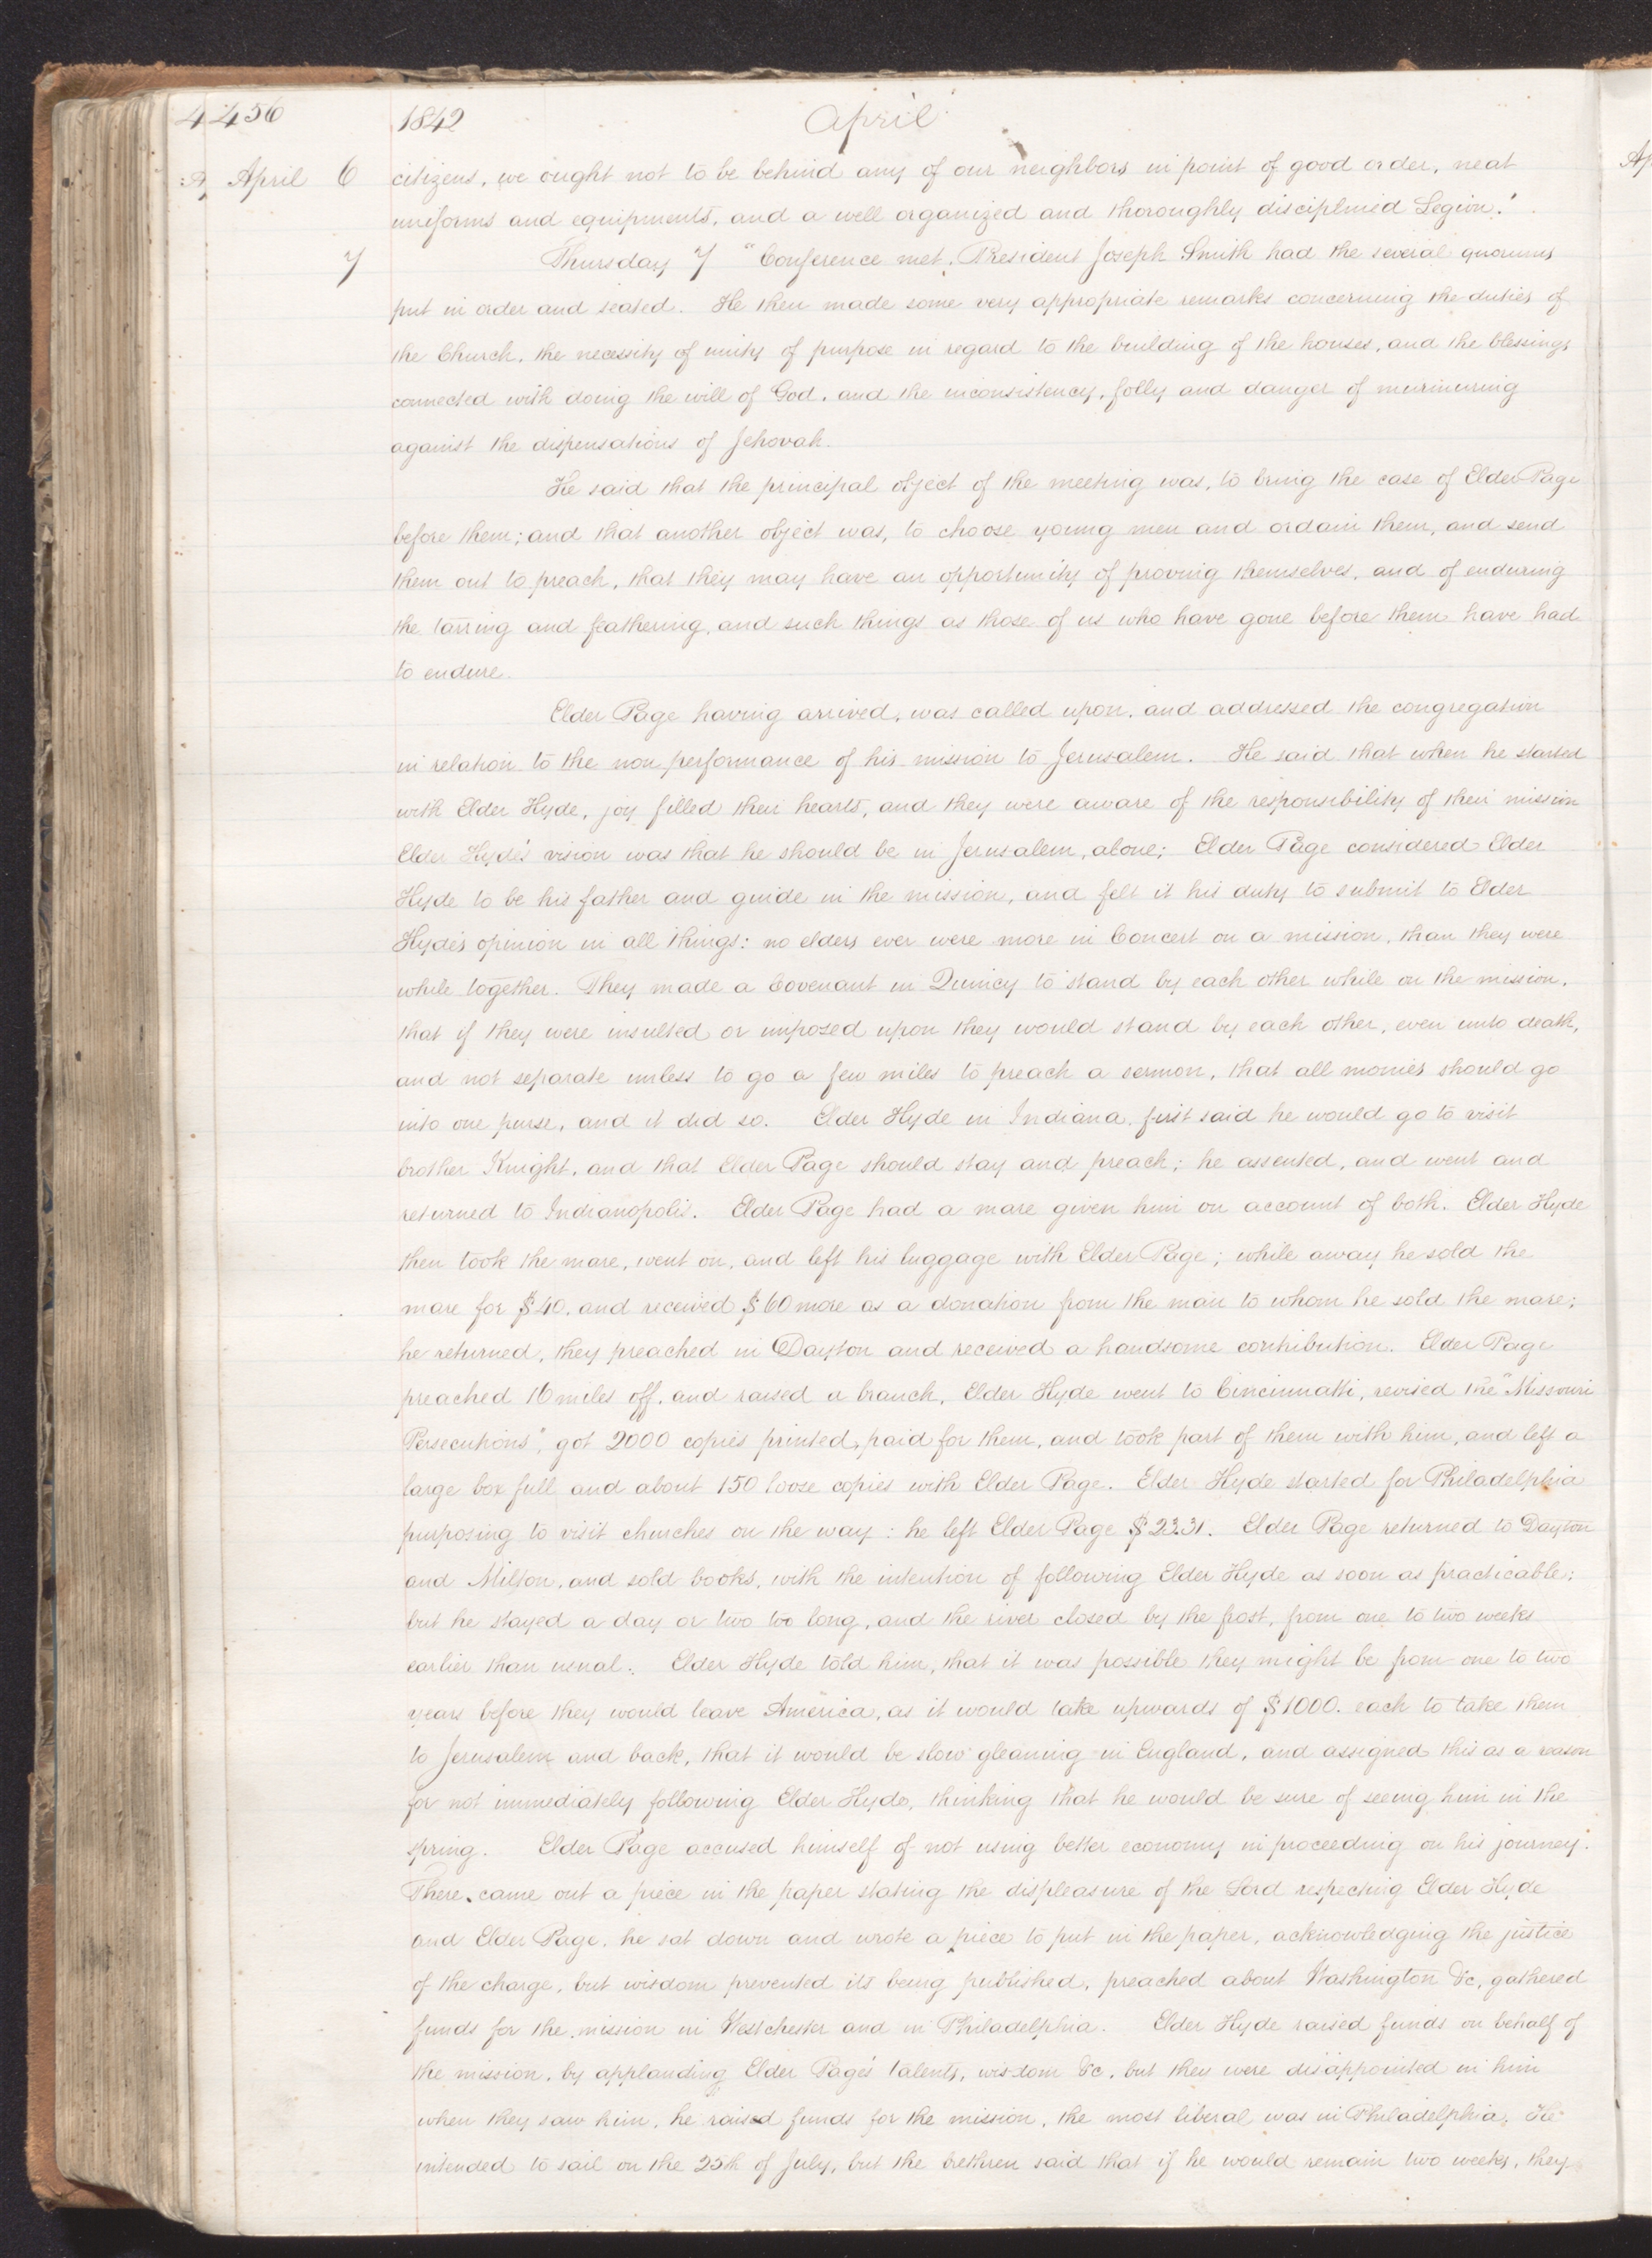 4 456 1842 April
A April 6 citizens, we ought not to be behind any of our neighbors in point of good order, neat
uniforms and equipments, and a well organized and thoroughly disciplined Legion."
7 Thursday 7 "Conference met, President Joseph Smith had the several quorums
put in order and seated. He then made some very appropriate remarks concerning the duties of
the Church, the necessity of unity of purpose in regard to the building of the houses, and the blessings
connected with doing the will of God, and the inconsistency, folly and danger of murmuring
against the dispensations of Jehovah.
He said that the principal object of the meeting was, to bring the case of Elder Page
before them; and that another object was, to choose young men and ordain them, and send
them out to preach, that they may have an opportunity of proving themselves, and of enduring
the tarring and feathering, and such things as those of us who have gone before them have had
to endure.
Elder Page having arrived, was called upon, and addressed the congregation
in relation to the non performance of his mission to Jerusalem. He said that when he started
with Elder Hyde, joy filled their hearts, and they were aware of the responsibility of their mission
Elder Hyde's vision was that he should be in Jerusalem, alone; Elder Page considered Elder
Hyde to be his father and guide in the mission, and felt it his duty to submit to Elder
Hyde's opinion in all things: no elders ever were more in Concert on a mission, than they were
while together. They made a Covenant in Quincy to stand by each other while on the mission,
that if they were insulted or imposed upon they would stand by each other, even unto death,
and not separate unless to go a few miles to preach a sermon, that all monies should go
into one purse, and it did so. Elder Hyde in Indiana first said he would go to visit
brother Knight, and that Elder Page should stay and preach; he assented, and went and
returned to Indianopolis. Elder Page had a mare given him on account of both. Elder Hyde
then took the mare, went on, and left his luggage with Elder Page; while away he sold the
mare for $40, and received $60 more as a donation from the man to whom he sold the mare;
he returned, they preached in Dayton and received a handsome contribution. Elder Page
preached 16 miles off, and raised a branch, Elder Hyde went to Cincinnatti, revised the "Missouri
Persecutions", got 2000 copies printed, paid for them, and took part of them with him, and left a
large box full and about 150 loose copies with Elder Page. Elder Hyde started for Philadelphia
purposing to visit churches on the way: he left Elder Page $23.31. Elder Page returned to Dayton
and Milton, and sold books, with the intention of following Elder Hyde as soon as practicable;
but he stayed a day or two too long, and the river closed by the frost, from one to two weeks
earlier than usual. Elder Hyde told him, that it was possible they might be from one to two
years before they would leave America, as it would take upwards of $1000. each to take them
to Jerusalem and back, that it would be slow gleaning in England, and assigned this as a reason
for not immediately following Elder Hyde, thinking that he would be sure of seeing him in the
spring. Elder Page accused himself of not using better economy in proceeding on his journey.
There came out a piece in the paper stating the displeasure of the Lord respecting Elder Hyde
and Elder Page, he sat down and wrote a piece to put in the paper, acknowledging the justice
of the charge, but wisdom prevented its being published, preached about Washington &c, gathered
funds for the mission in Westchester and in Philadelphia. Elder Hyde raised funds on behalf of
the mission, by applauding Elder Page's talents, wisdom &c, but they were disappointed in him
when they saw him, he raised funds for the mission, the most liberal was in Philadelphia. He
intended to sail on the 25th of July, but the brethren said that if he would remain two weeks, they